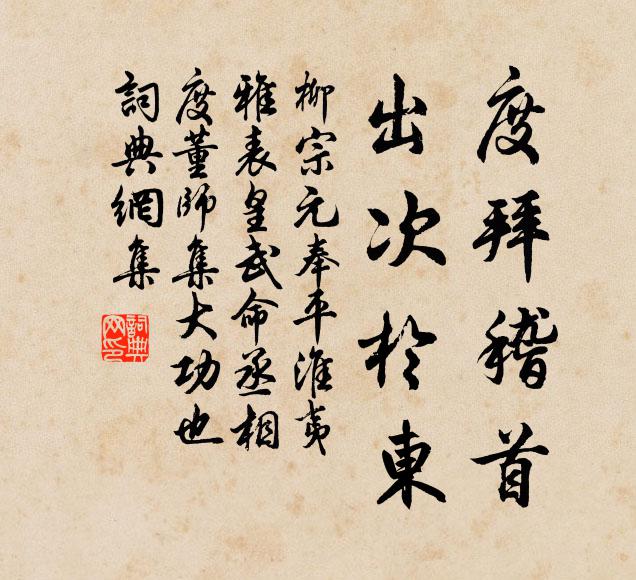 度拜稽首
出次於東
柳宗元奉平淮夷
雅表皇武命丞相
度董師集大功也
詞典網集
詞典
网印